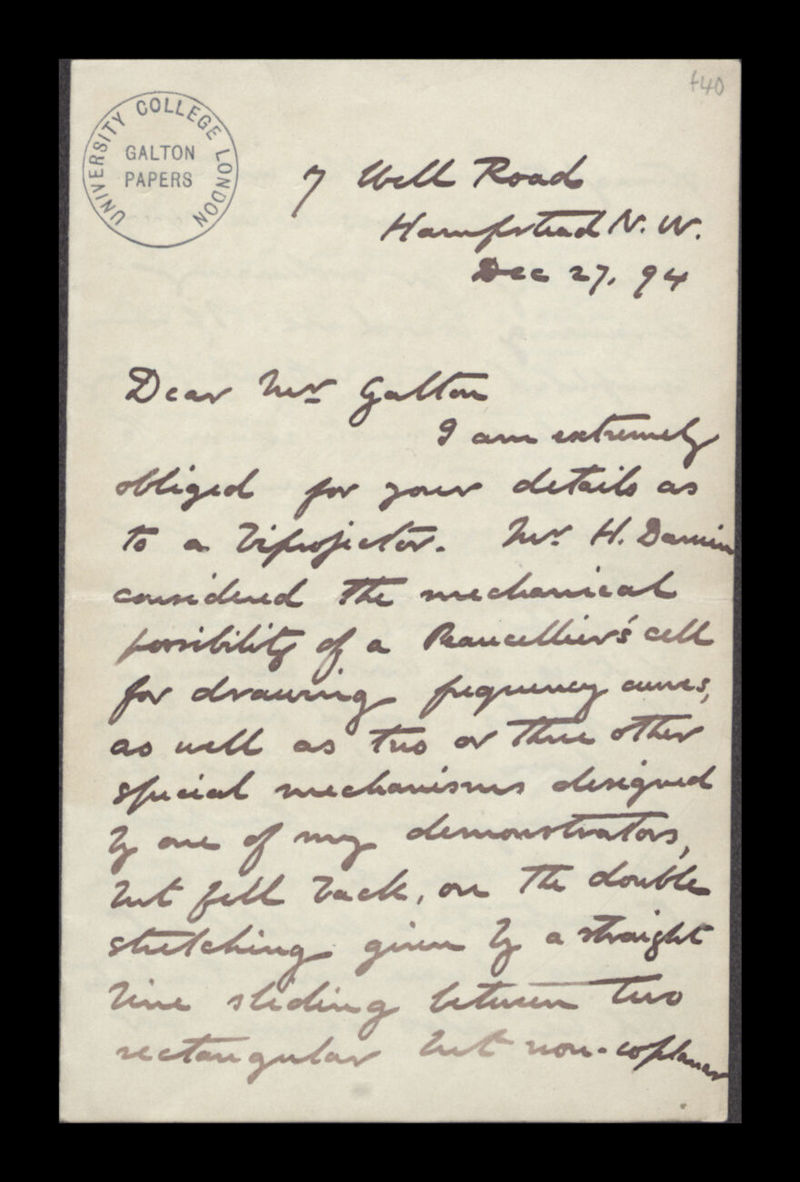 440
UNIVERSITY COLLEGE LONDON
GALTON
PAPERS
7 Well Road
Hampstead N. W.
Dec 27. 94
Dear Mr Galton
I am extremely
obliged for your details as
to a biprojector. Mr. H. Darwin
considered the mechanical
possibility of a Peaucellier's cell
for drawing frequency curves,
as well as two or three other
special mechanisms designed
by one of my demonstrators,
but fell back, on the double
stretching given by a straight
line sliding between two
rectangular but non-coplanar